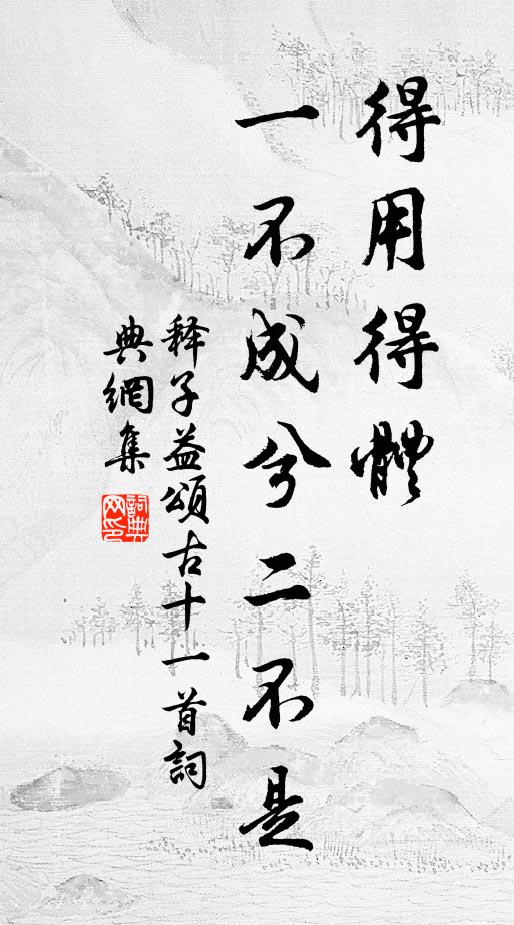 得用得體
一不成兮二不是
释子益頌古十一首詞
典網集
詞典
网印